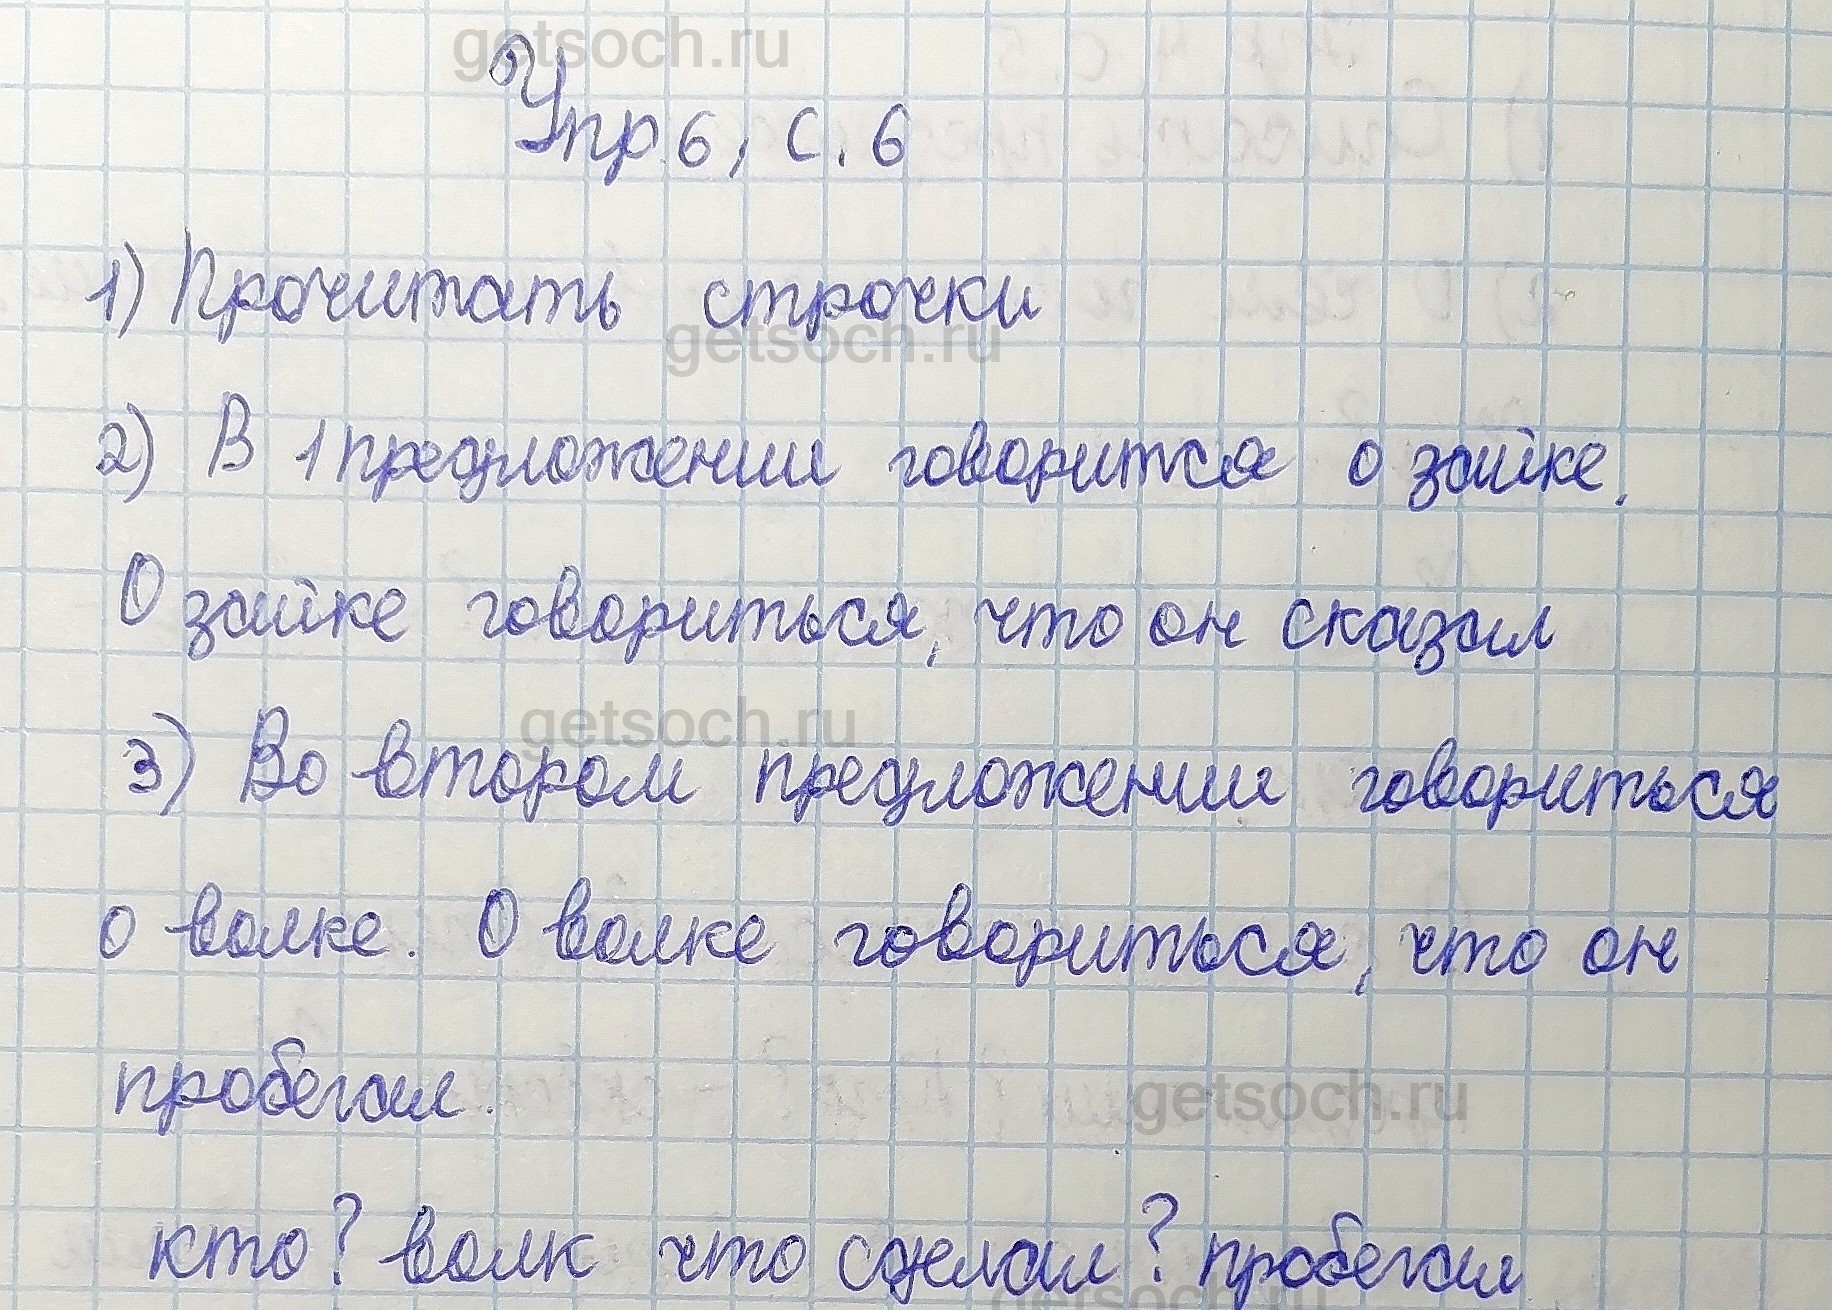 getsoch.ru
Упр 6, с. 6
1) Прочитать строчки
getsoch.ru
2) В 1 предложении говорится о зайке.
О зайке говориться, что он сказал
getsoch.ru
3) Во втором предложении говориться
о волке. О волке говориться, что он
пробегал.
getsoch.ru
кто? волк что сделал? пробегал
getsoch.ru